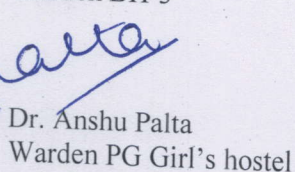 Dr. Anshu Palta
Warden PG Girl's hostel